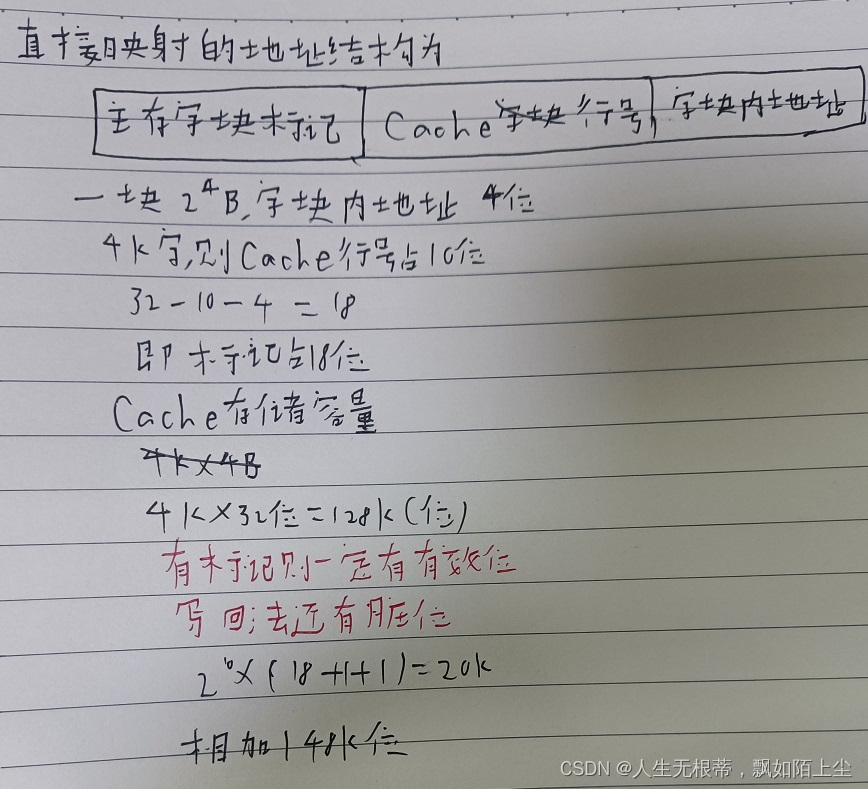 直接映射的地址结构为
主存字块标记 Cache字块行号 字块内地址
一块 2⁴B,字块内地址 4位
4K字,则Cache行号占10位
32-10-4=18
即标记占18位
Cache存储容量
4K×4B
4K×32位=128K(位)
有标记则一定有有效位
写回法还有脏位
2¹⁰×(18+1+1)=20K
相加148K位
CSDN @人生无根蒂，飘如陌上尘